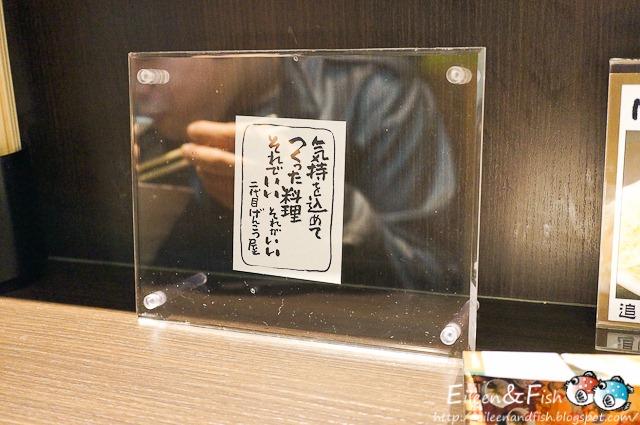 気持を込めて
つくった料理
それでいい それがいい
二代目げんこつ屋
追
Eileen&Fish
http://eileenandfish.blogspot.com/